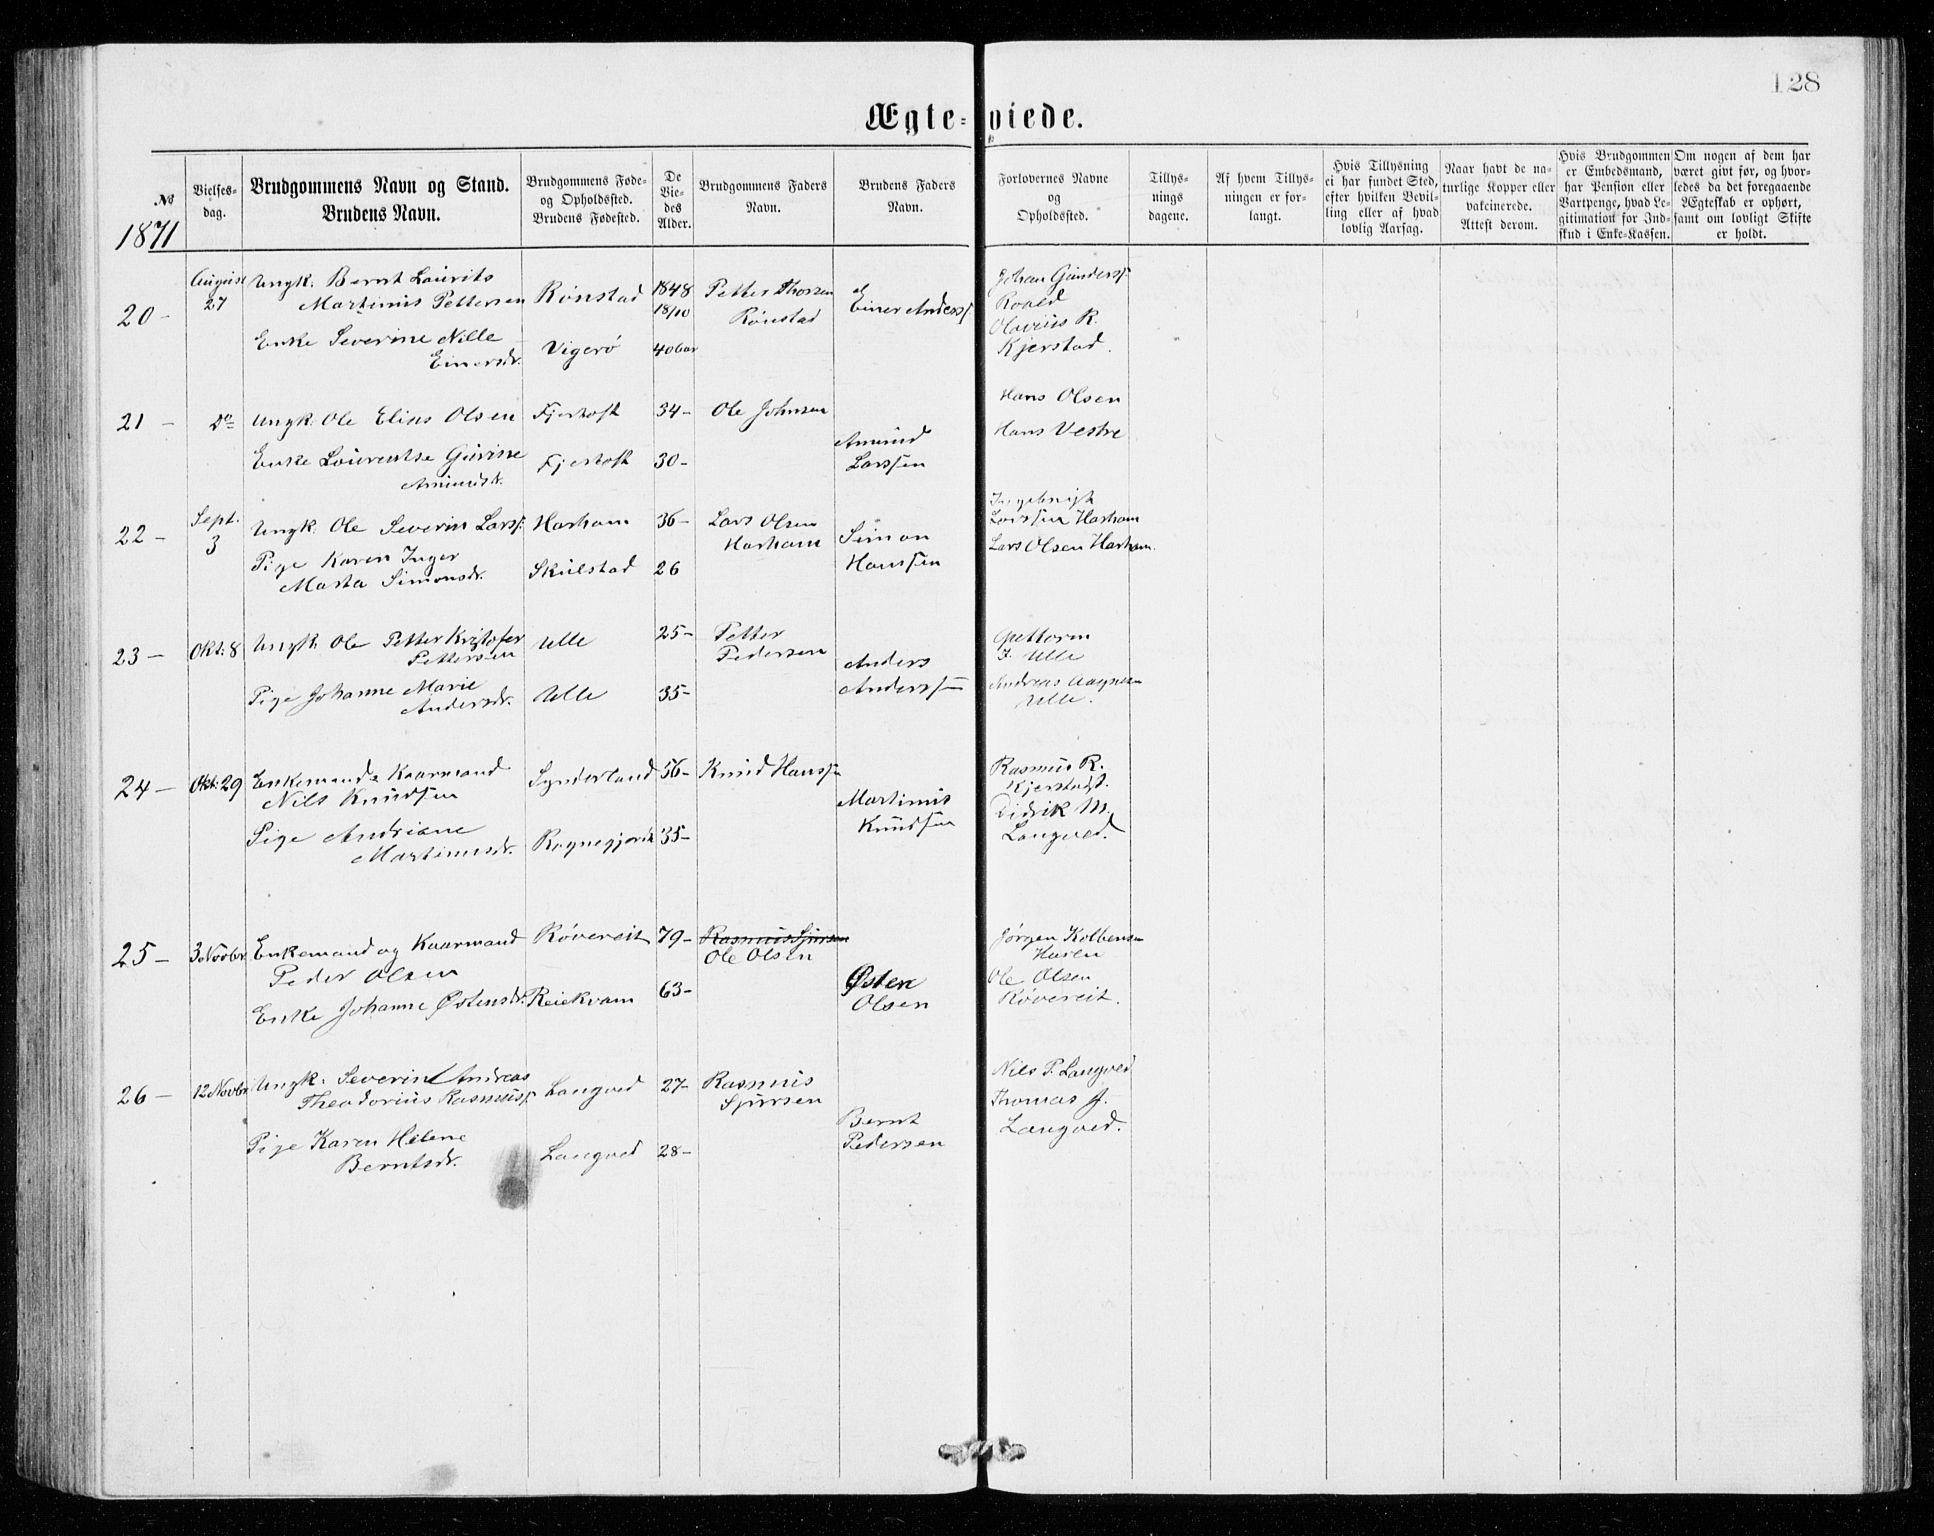 128
Ægte-viede.
№
1871
Vielses-
dag.
Brudgommens Navn og Stand.
Brudens Navn.
Brudgommens Føde-
og Opholdssted.
Brudens Fødested.
De
Vie-
des
Alder.
Brudgommens Faders
Navn.
Brudens Faders
Navn.
Forlovernes Navne
og
Opholdssted.
Tillys-
nings
dagene.
Af hvem Tillys-
ningen er for-
langt.
Hvis Tillysning
ei har fundet Sted,
efter hvilken Bevil-
ling eller af hvad
lovlig Aarsag.
Naar havt de na-
turlige Kopper eller
vakcinerede.
Attest derom.
Hvis Brudgommen
er Embedsmand,
har Pension eller
Vartpenge, hvad Le-
gitimation for Ind-
skud i Enke-Kassen.
Om nogen af dem har
været givt før, og hvor-
ledes da det foregaaende
Ægteskab er ophørt,
samt om lovligt Skifte
er holdt.
20 -
August
27
Ungk. Bernt Laurits
Martinus Pettersen
Enke Severine Nille
Einersdr.
Rønstad
Vigerø
1848
18/10
40 6ar
Petter Thorsen
Rønstad
Einer Anderss.
Johan Gunderss.
Roald
Olavius R.
Kjerstad.
21 -
Do
Ungk. Ole Elias Olsen
Enke Laurentse Gurine
Amundsdr.
Fjertoft
Fjertoft
34-
30-
Ole Johnsen
Amund
Larssen
Hans Olsen
Hans Vestre
22 -
Sept.
3
Ungk. Ole Severin Larss.
Pige Karen Inger
Marta Simonsdr.
Harham
Skulstad
36-
26
Lars Olsen
Harham
Simon
Hanssen
Ingebrigt
Larssen Harham
Lars Olsen Harham.
23 -
Okt. 8
Ungk. Ole Petter Kristofer
Pettersen
Pige Johanne Marie
Andersdr.
Ulle
Ulle
25-
35-
Petter
Pedersen
Anders
Anderssen
J. Ulle
Andreas
Ulle.
24 -
Okt. 29
Enkemand & Kaarmand
Nils Knudsen
Pige Andriane
Martinusdr.
Synderland
Rognegjerde
56-
35-
Knud Hanssen
Martinus
Knudsen
Rasmus R.
Kjerstad.
Didrik M.
Langved.
25 -
3 Novbr.
Enkemand og Kaarmand
Peder Olsen
Enke Johanne Østensdr.
Røvereit
Reiekvam
79-
63-
Rasmus Sjursen
Ole Olsen
Østen
Olsen
Jørgen Kolbensen
Ole Olsen
Røvereit.
26 -
12 Novbr.
Ungk. Severin Andreas
Theodorius Rasmuss.
Pige Karen Helene
Berntsdr.
Langved
Langved
27-
28-
Rasmus
Sjursen
Bernt
Pedersen
Nils P. Langved
Thomas J.
Langved.